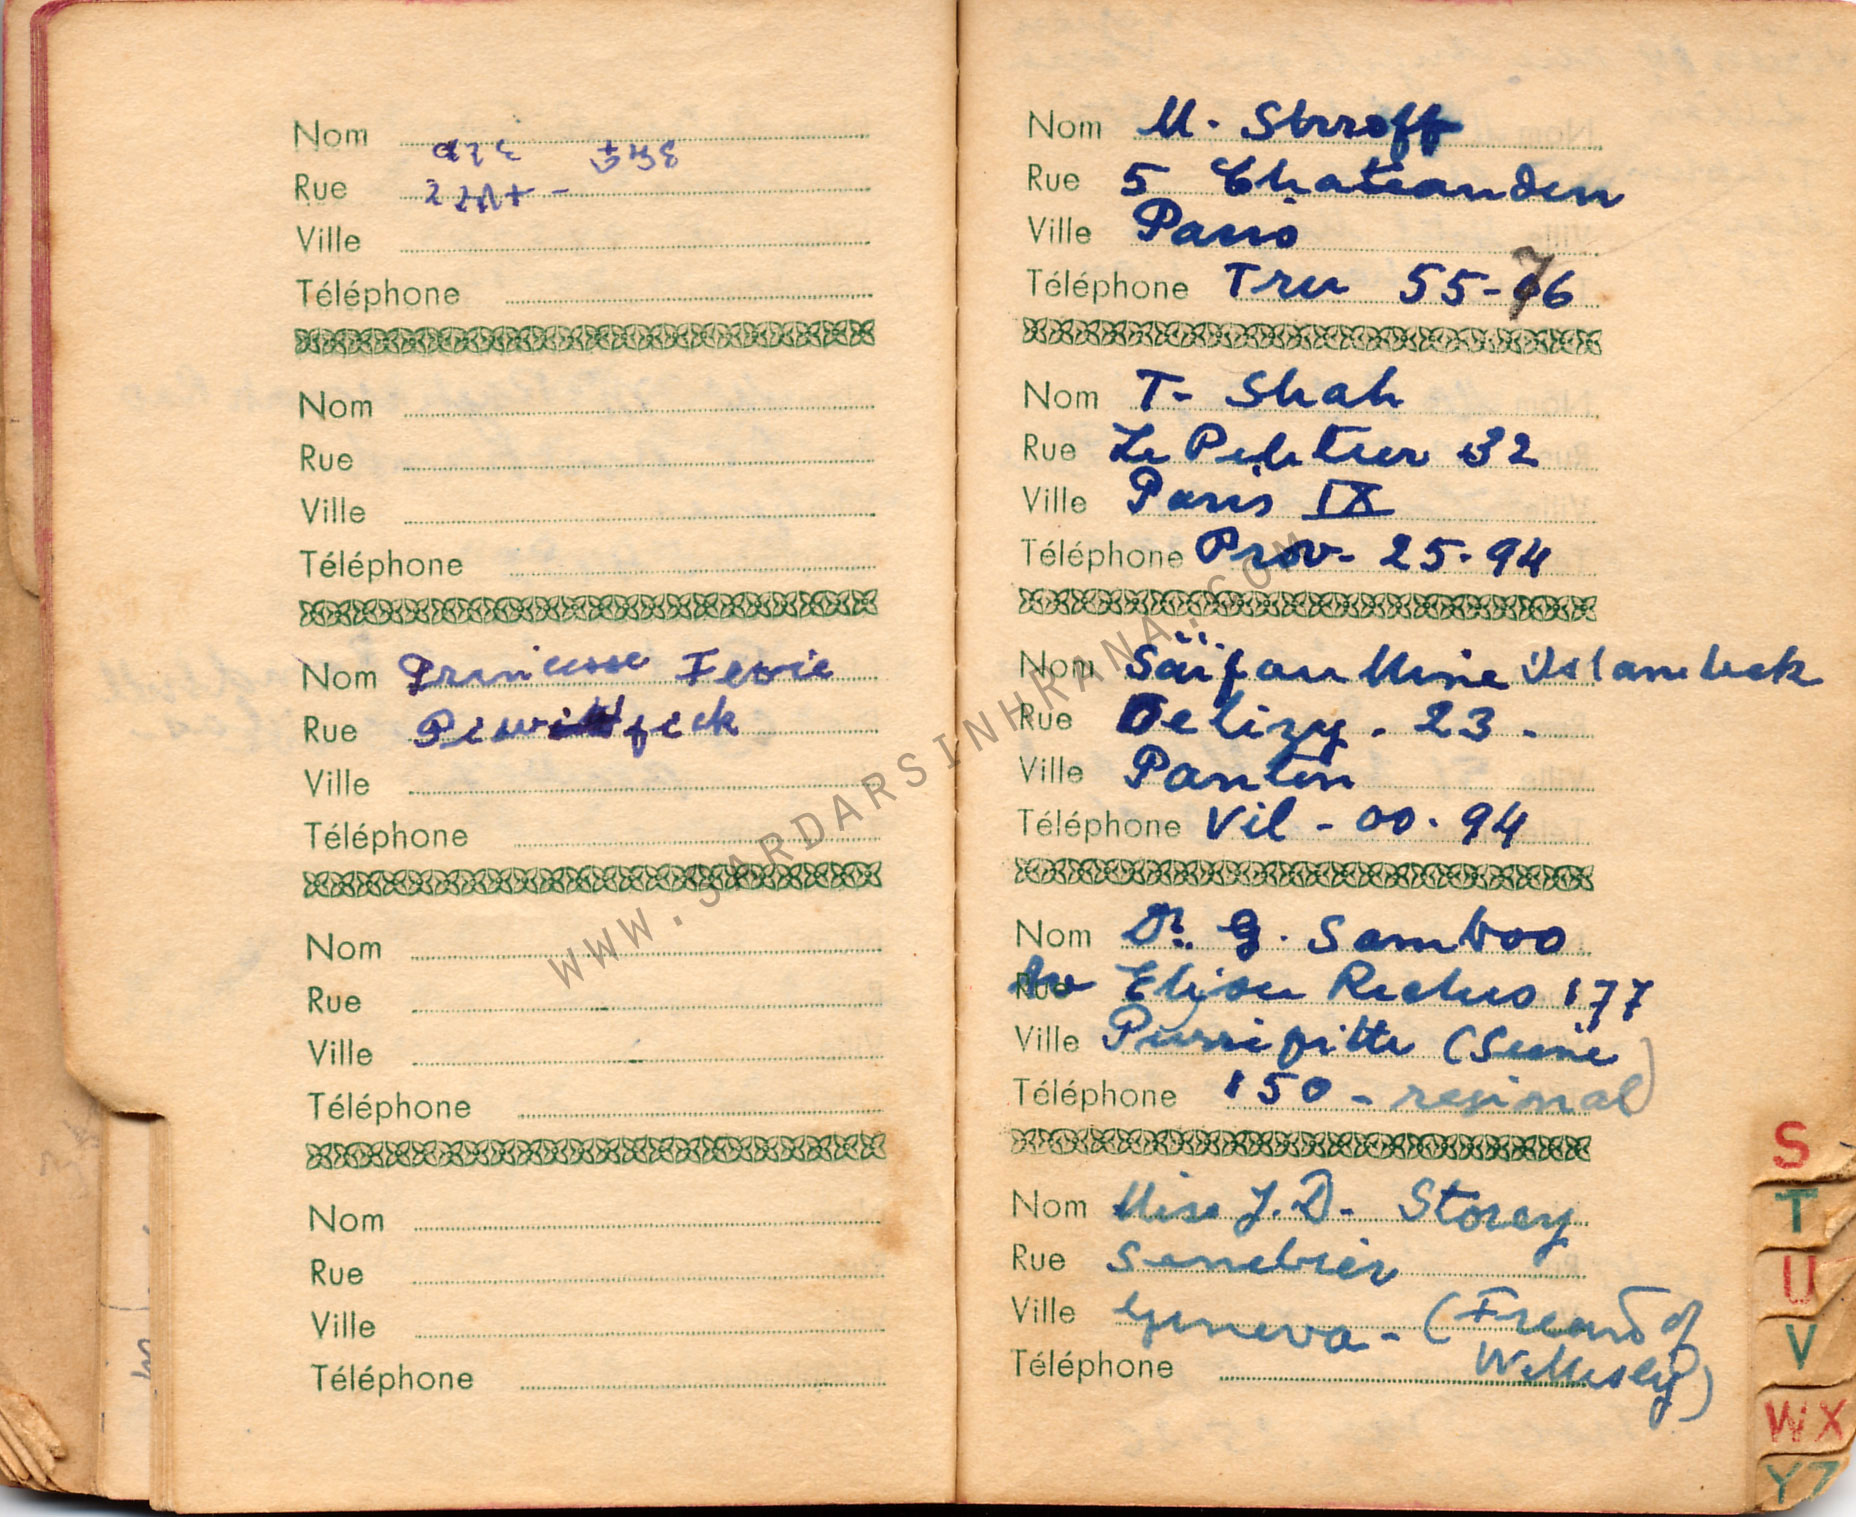 Nom
Rue
Ville
Téléphone
Nom
Rue
Ville
Téléphone
Nom Princesse
Rue
Ville
Téléphone
Nom
Rue
Ville
Téléphone
Nom
Rue
Ville
Téléphone
Nom M. Sbrroff
Rue 5 Chateauden
Ville Paris
Téléphone Tru 55-76
Nom T- Shah
Rue Le Peletier 32
Ville Paris IX
Téléphone Prov- 25.94
Nom Islambek
Rue Delizy. 23.
Ville Pantin
Téléphone Vil - 00. 94
Nom Dr. G. Samboo
Rue Av Elisee Reclus 177
Ville Pierrefitte (Seine)
Téléphone 150 - regional
Nom Miss J. D- Storey
Rue Senebier
Ville Geneva - (Friend of
Téléphone Wellesley)
S
T
U
V
WX
YZ
WWW.SARDARSINHRANA.COM